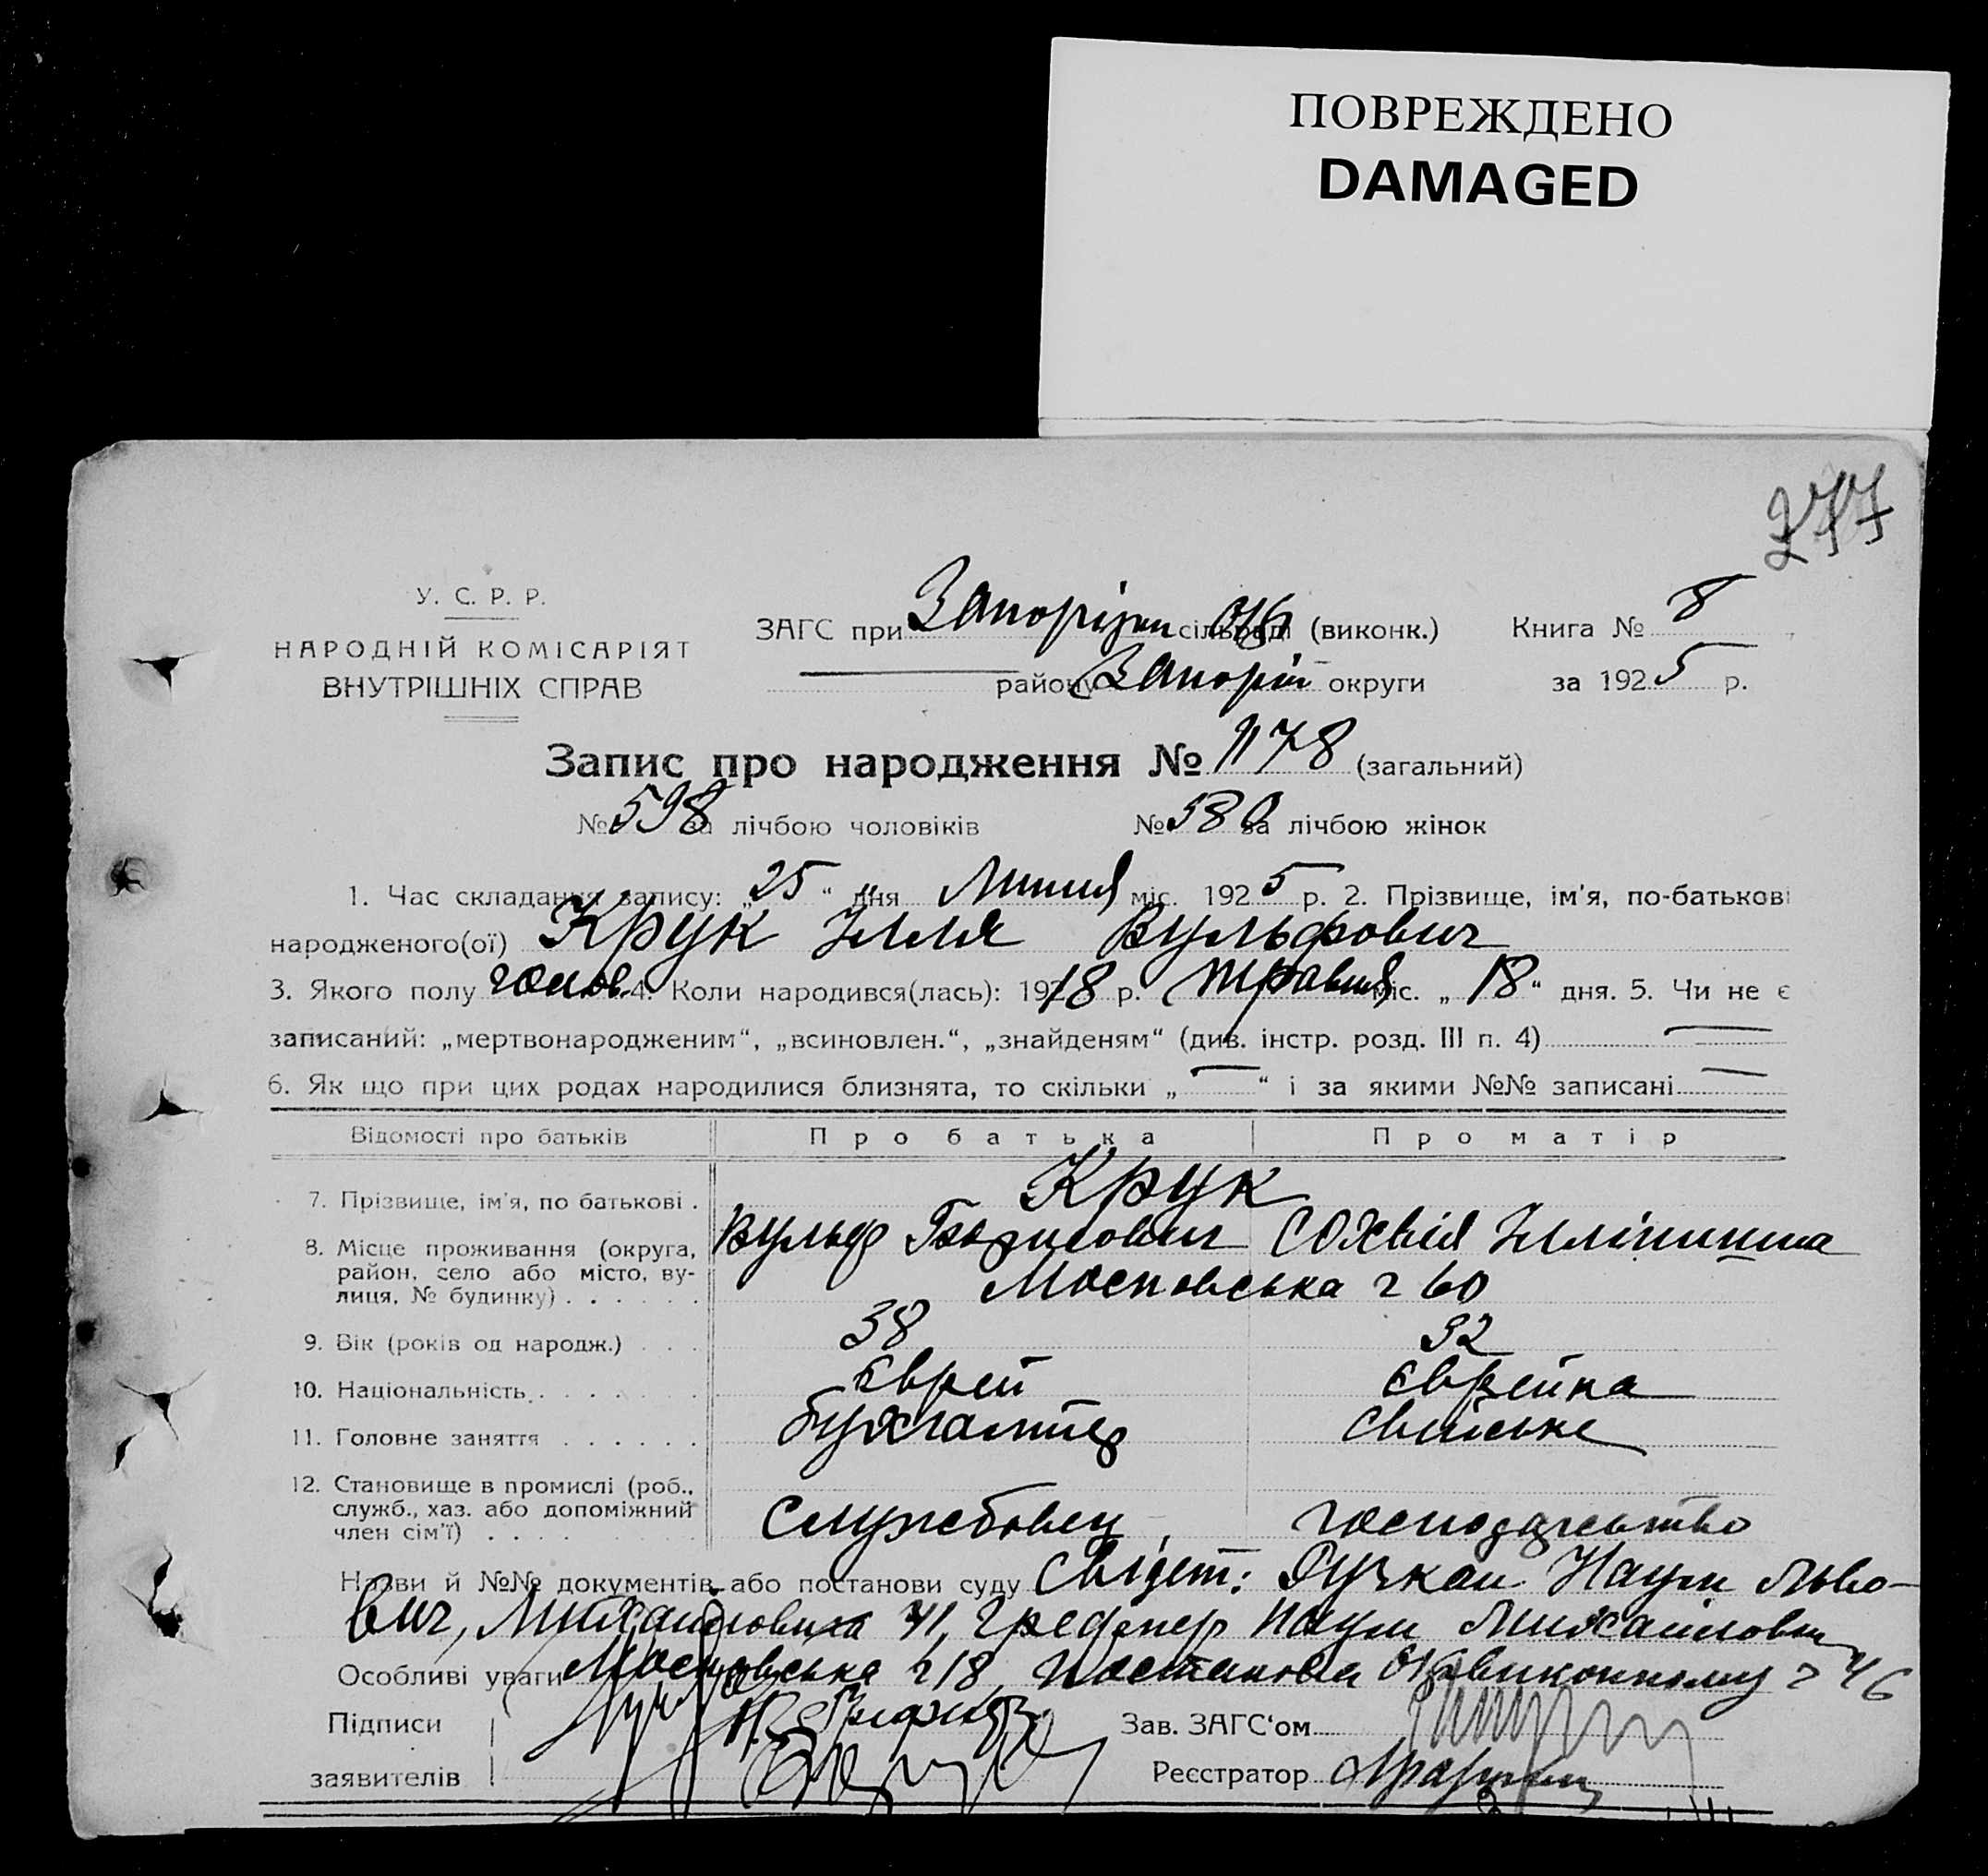 ПОВРЕЖДЕНО
DAMAGED
277
У. С. Р. Р.
НАРОДНІЙ КОМІСАРІЯТ
ВНУТРІШНІХ СПРАВ
ЗАГС при Запорізьк сільраді (виконк.) Книга № 8
району Запоріж округи за 1925 р.
Запис про народження № 1178 (загальний)
№ 598 за лічбою чоловіків № 580 за лічбою жінок
1. Час складання запису: „25“ дня Липня міс. 1925 р. 2. Прізвище, ім'я, по-батькові
народженого(ої) Крук Ілля Вульфович
3. Якого полу чолов. 4. Коли народився(лась): 1918 р. травня міс. „18“ дня. 5. Чи не є
записаний: „мертвонародженим“, „всиновлен.“, „знайденям“ (див. інстр. розд. III п. 4) —
6. Як що при цих родах народилися близнята, то скільки „—“ і за якими №№ записані —
Відомості про батьків Про батька Про матір
7. Прізвище, ім'я, по батькові . Крук
Вульф Борисович Софвія Іллінишна
8. Місце проживання (округа, район, село або місто, вулиця, № будинку) . . . . . . Московська ч 60
9. Вік (років од народж.) . . . 38 32
10. Національність . . . . . . . Єврей Єврейка
11. Головне заняття . . . . . . бухгалтер Свийське
12. Становище в промислі (роб., служб., хаз. або допоміжний член сім'ї) . . . . Службовец, господарство
Назви й №№ документів або постанови суду Свідет: Наум Льво-
вич, Михайловича 41, Наум Михайлович
Особливі уваги Московська ч 18, Постанова Окрвиконкому ч 46
Підписи
заявителів
Зав. ЗАГС'ом
Реєстратор